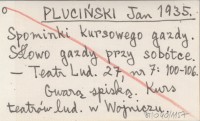 PLUCIŃSKI Jan 1935.
Spominki kursowego gazdy.
Słowo gazdy przy sobótce.
- Teatr Lud. 27, nr 7: 100-106.
Gwarą spiską. Kurs
teatrów lud. w Wojniczu.